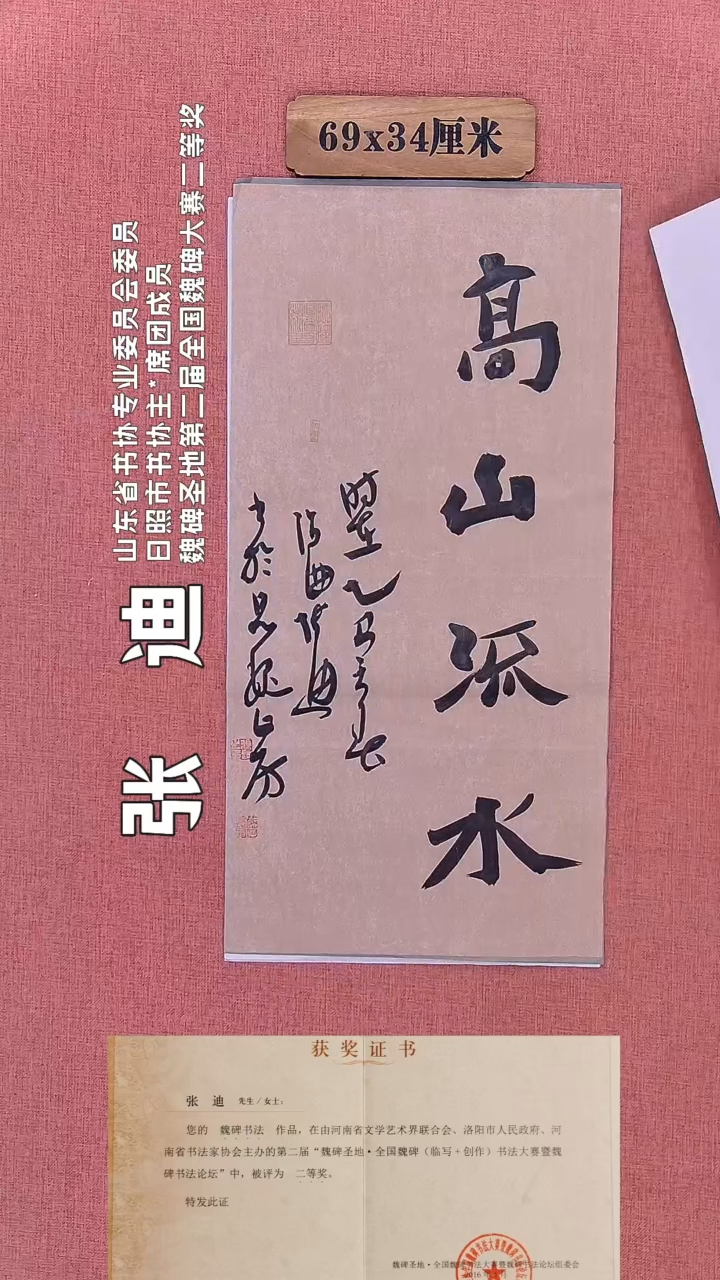 69x34厘米
高山流水
山东省书协专业委员会委员
日照市书协主*席团成员
魏碑圣地第二届全国魏碑大赛二等奖
张 迪
获奖证书
张 迪 先生/女士:
您的 魏碑书法 作品,在由河南省文学艺术界联合会、洛阳市人民政府、河
南省书法家协会主办的第二届“魏碑圣地·全国魏碑(临写+创作)书法大赛暨魏
碑书法论坛”中,被评为 二等奖。
特发此证
魏碑圣地·全国魏碑书法大赛暨魏碑书法论坛组委会